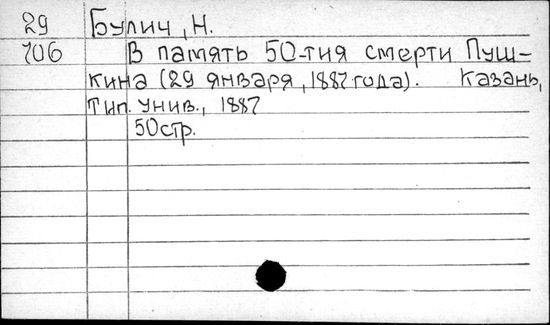 29 Булич, Н.
706 В память 50-тия смерти Пуш-
кина (29 января, 1887 года). Казань,
Тип. унив., 1887
50стр.